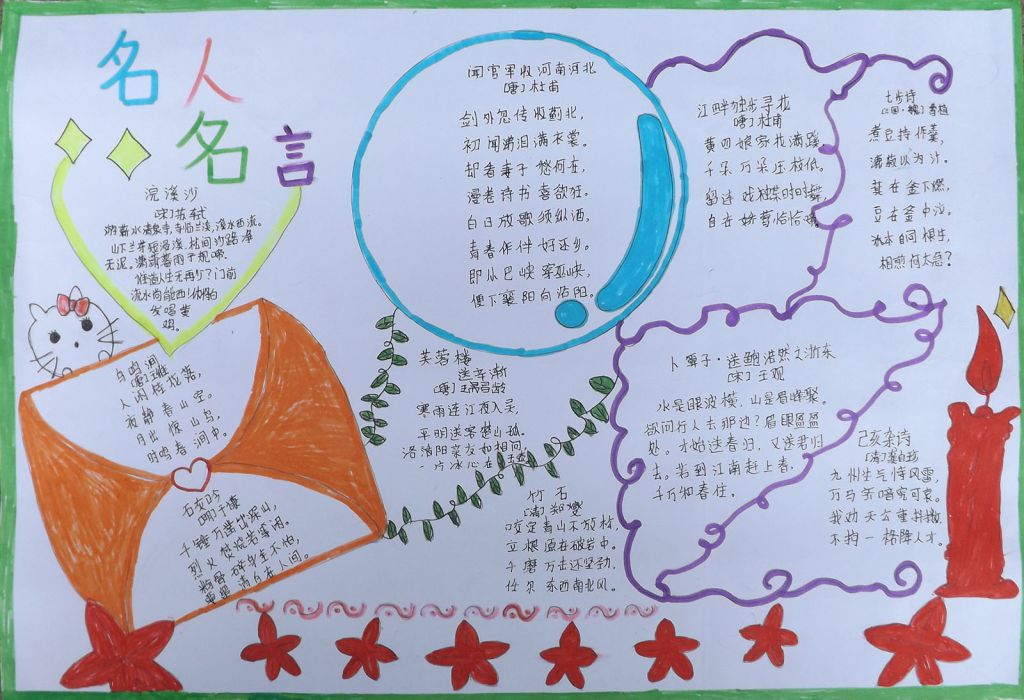 名人
名言
浣溪沙
[宋]苏轼
游蕲水清泉寺,寺临兰溪,溪水西流。
山下兰芽短浸溪,松间沙路净
无泥。潇潇暮雨子规啼。
谁道人生无再少?门前
流水尚能西!休将白
发唱黄
鸡。
鸟鸣涧
[唐]王维
人闲桂花落,
夜静春山空。
月出惊山鸟,
时鸣春涧中。
石灰吟
[明]于谦
千锤万凿出深山,
烈火焚烧若等闲。
粉骨碎身全不怕,
要留清白在人间。
闻官军收河南河北
[唐]杜甫
剑外忽传收蓟北,
初闻涕泪满衣裳。
却看妻子愁何在,
漫卷诗书喜欲狂。
白日放歌须纵酒,
青春作伴好还乡。
即从巴峡穿巫峡,
便下襄阳向洛阳。
芙蓉楼
送辛渐
[唐]王昌龄
寒雨连江夜入吴,
平明送客楚山孤。
洛阳亲友如相问,
一片冰心在玉壶
竹石
[清]郑燮
咬定青山不放松,
立根原在破岩中。
千磨万击还坚劲,
任尔东西南北风。
江畔独步寻花
[唐]杜甫
黄四娘家花满蹊,
千朵万朵压枝低。
留连戏蝶时时舞,
自在娇莺恰恰啼
七步诗
[三国·魏]曹植
煮豆持作羹,
漉菽以为汁。
萁在釜下燃,
豆在釜中泣。
本自同根生,
相煎何太急?
卜算子·送鲍浩然之浙东
[宋]王观
水是眼波横,山是眉峰聚。
欲问行人去那边?眉眼盈盈
处。才始送春归,又送君归
去。若到江南赶上春,
千万和春住。
己亥杂诗
[清]龚自珍
九州生气恃风雷,
万马齐喑究可哀。
我劝天公重抖擞,
不拘一格降人才。